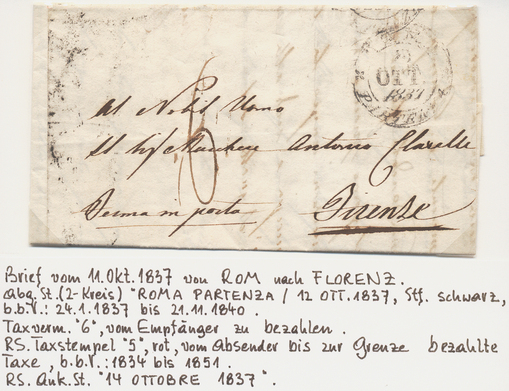 OTT
1837
Al Nobil Uomo
Il Sig Marchese Antonio
6
Ferma in posta
Firenze
Brief vom 11.Okt.1837 von ROM nach FLORENZ.
abg.St.(2-Kreis) "ROMA PARTENZA / 12 OTT.1837, Stf. schwarz,
b.b.V.: 24.1.1837 bis 21.11.1840.
Taxverm. "6", vom Empfänger zu bezahlen.
RS.Taxstempel "5", rot, vom Absender bis zur Grenze bezahlte
Taxe, b.b.V.:1834 bis 1851.
RS. Ank.St. "14 OTTOBRE 1837".